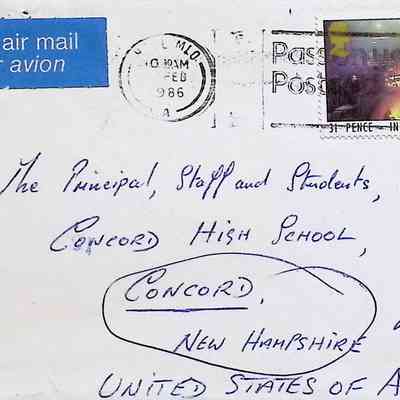 air mail
avion
MLO.
10 30AM
FEB
986
A
Pas
Post
31 PENCE - IN
The Principal, Staff and Students,
CONCORD HIGH SCHOOL,
CONCORD,
NEW HAMPSHIRE
UNITED STATES OF A